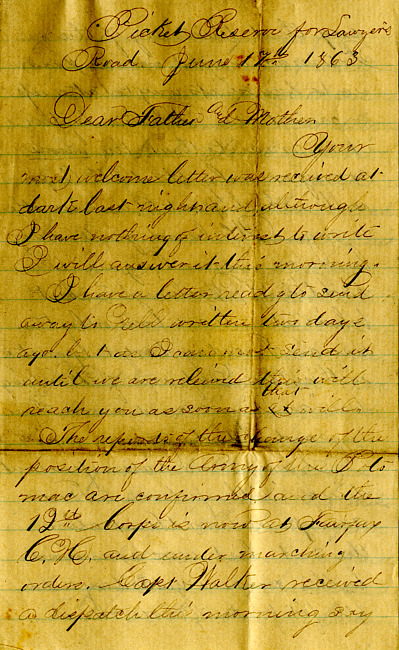 Picket Reserve for Lawyers
Road June 17th 1863
Dear Father and Mother
Your
most welcome letter was received at
dark last night and although
I have nothing of interest to write
I will answer it this morning.
I have a letter ready to send
away to written two days
ago but as I can not send it
until we are relieved this will
reach you as soon as that will.
The reports of the change of the
position of the Army of the Poto
mac are confirmed and the
12th Corps is now at Fairfax
C. H. and under marching
orders. Capt Walker received
a dispatch this morning say